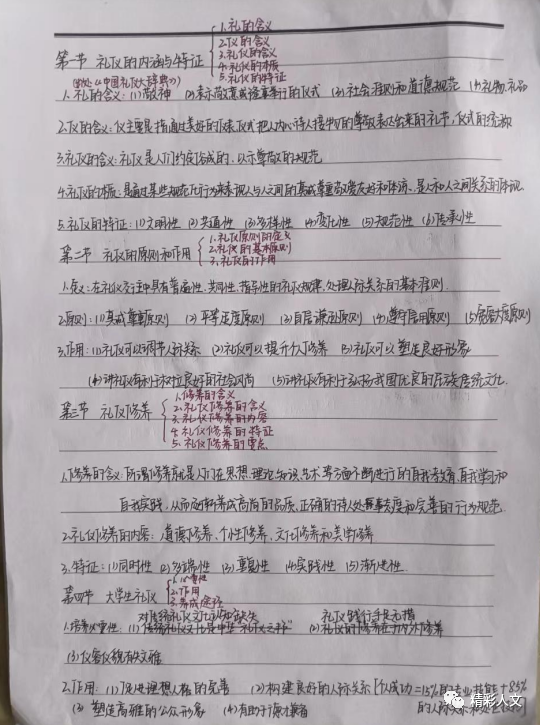 1.礼的含义
2.仪的含义
第一节 礼仪的内涵与特征
3.礼仪的含义
4.礼仪的本质
5.礼仪的特征
《中国礼仪大辞典》
1.礼的含义:(1)敬神 (2)表示敬意或隆重举行的仪式 (3)社会准则和道德规范 (4)礼物、礼品
2.仪的含义:仪主要是指通过美好的仪表、仪式把人内心待人接物的尊敬表达出来的礼节,仪式的
3.礼仪的含义:礼仪是人们约定俗成的,以示尊敬的规范
4.礼仪的本质:是通过某些规范化行为来表现人与人之间的真诚尊重敬爱友好和体谅、是人和人之间关系的体现
5.礼仪的特征:(1)文明性 (2)共通性 (3)多样性 (4)变化性 (5)规范性 (6)传承性
1.礼仪原则的定义
第二节 礼仪的原则和作用
2.礼仪的基本原则
3.礼仪的作用
1.定义:在礼仪交往中具有普遍性、共同性、指导性的礼仪规律,处理人际关系的基本准则.
2.原则:(1)真诚尊重原则 (2)平等适度原则 (3)自信 原则 (4)尊守信用原则 (5)宽容大度原则
3.作用:(1)礼仪可以调节人际关系 (2)礼仪可以提升个人修养 (3)礼仪可以塑造良好形象
(4)讲礼仪有利于树立良好的社会风尚 (5)讲礼仪有利于弘扬我国优良的民族传统文化.
1.修养的含义
第三节 礼仪修养
2.礼仪修养的含义
3.礼仪修养的内容
4.礼仪修养的特征
5.礼仪修养的重点
1.修养的含义:所谓修养就是人们在思想、理论、知识、艺术等方面不断进行的自我教育、自我学习和
自我实践,从而逐渐养成高尚的品质、正确的待人处事态度和完善的行为规范.
2.礼仪修养的内容:道德修养、个性修养、文化修养和美学修养
3.特征:(1)同时性 (2)多端性 (3)重复性 (4)实践性 (5)渐进性
第四节 大学生礼仪
2.作用
3.养成途径
对传统礼仪文化认知缺失 礼仪践行手足无措
(3)仪容仪貌有失文雅
2.作用:(1)促进理想人格的完善 (2)构建良好的人际关系[个人成功=15%的专业技能+85%
(3)塑造高雅的公众形象 (4)有助于
的人际关系和处世
精彩人文